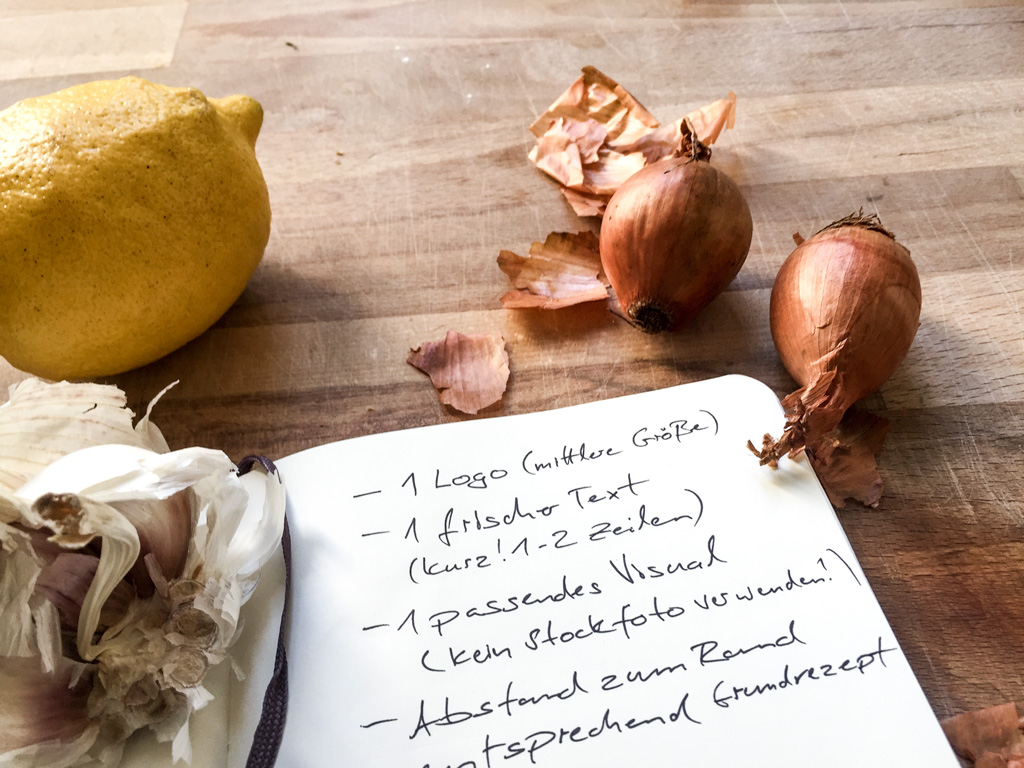 – 1 Logo (mittlere Größe)
– 1 frischer Text
(kurz! 1-2 Zeilen)
– 1 passendes Visual
(kein Stockfoto verwenden!)
– Abstand zum Rand
entsprechend Grundrezept